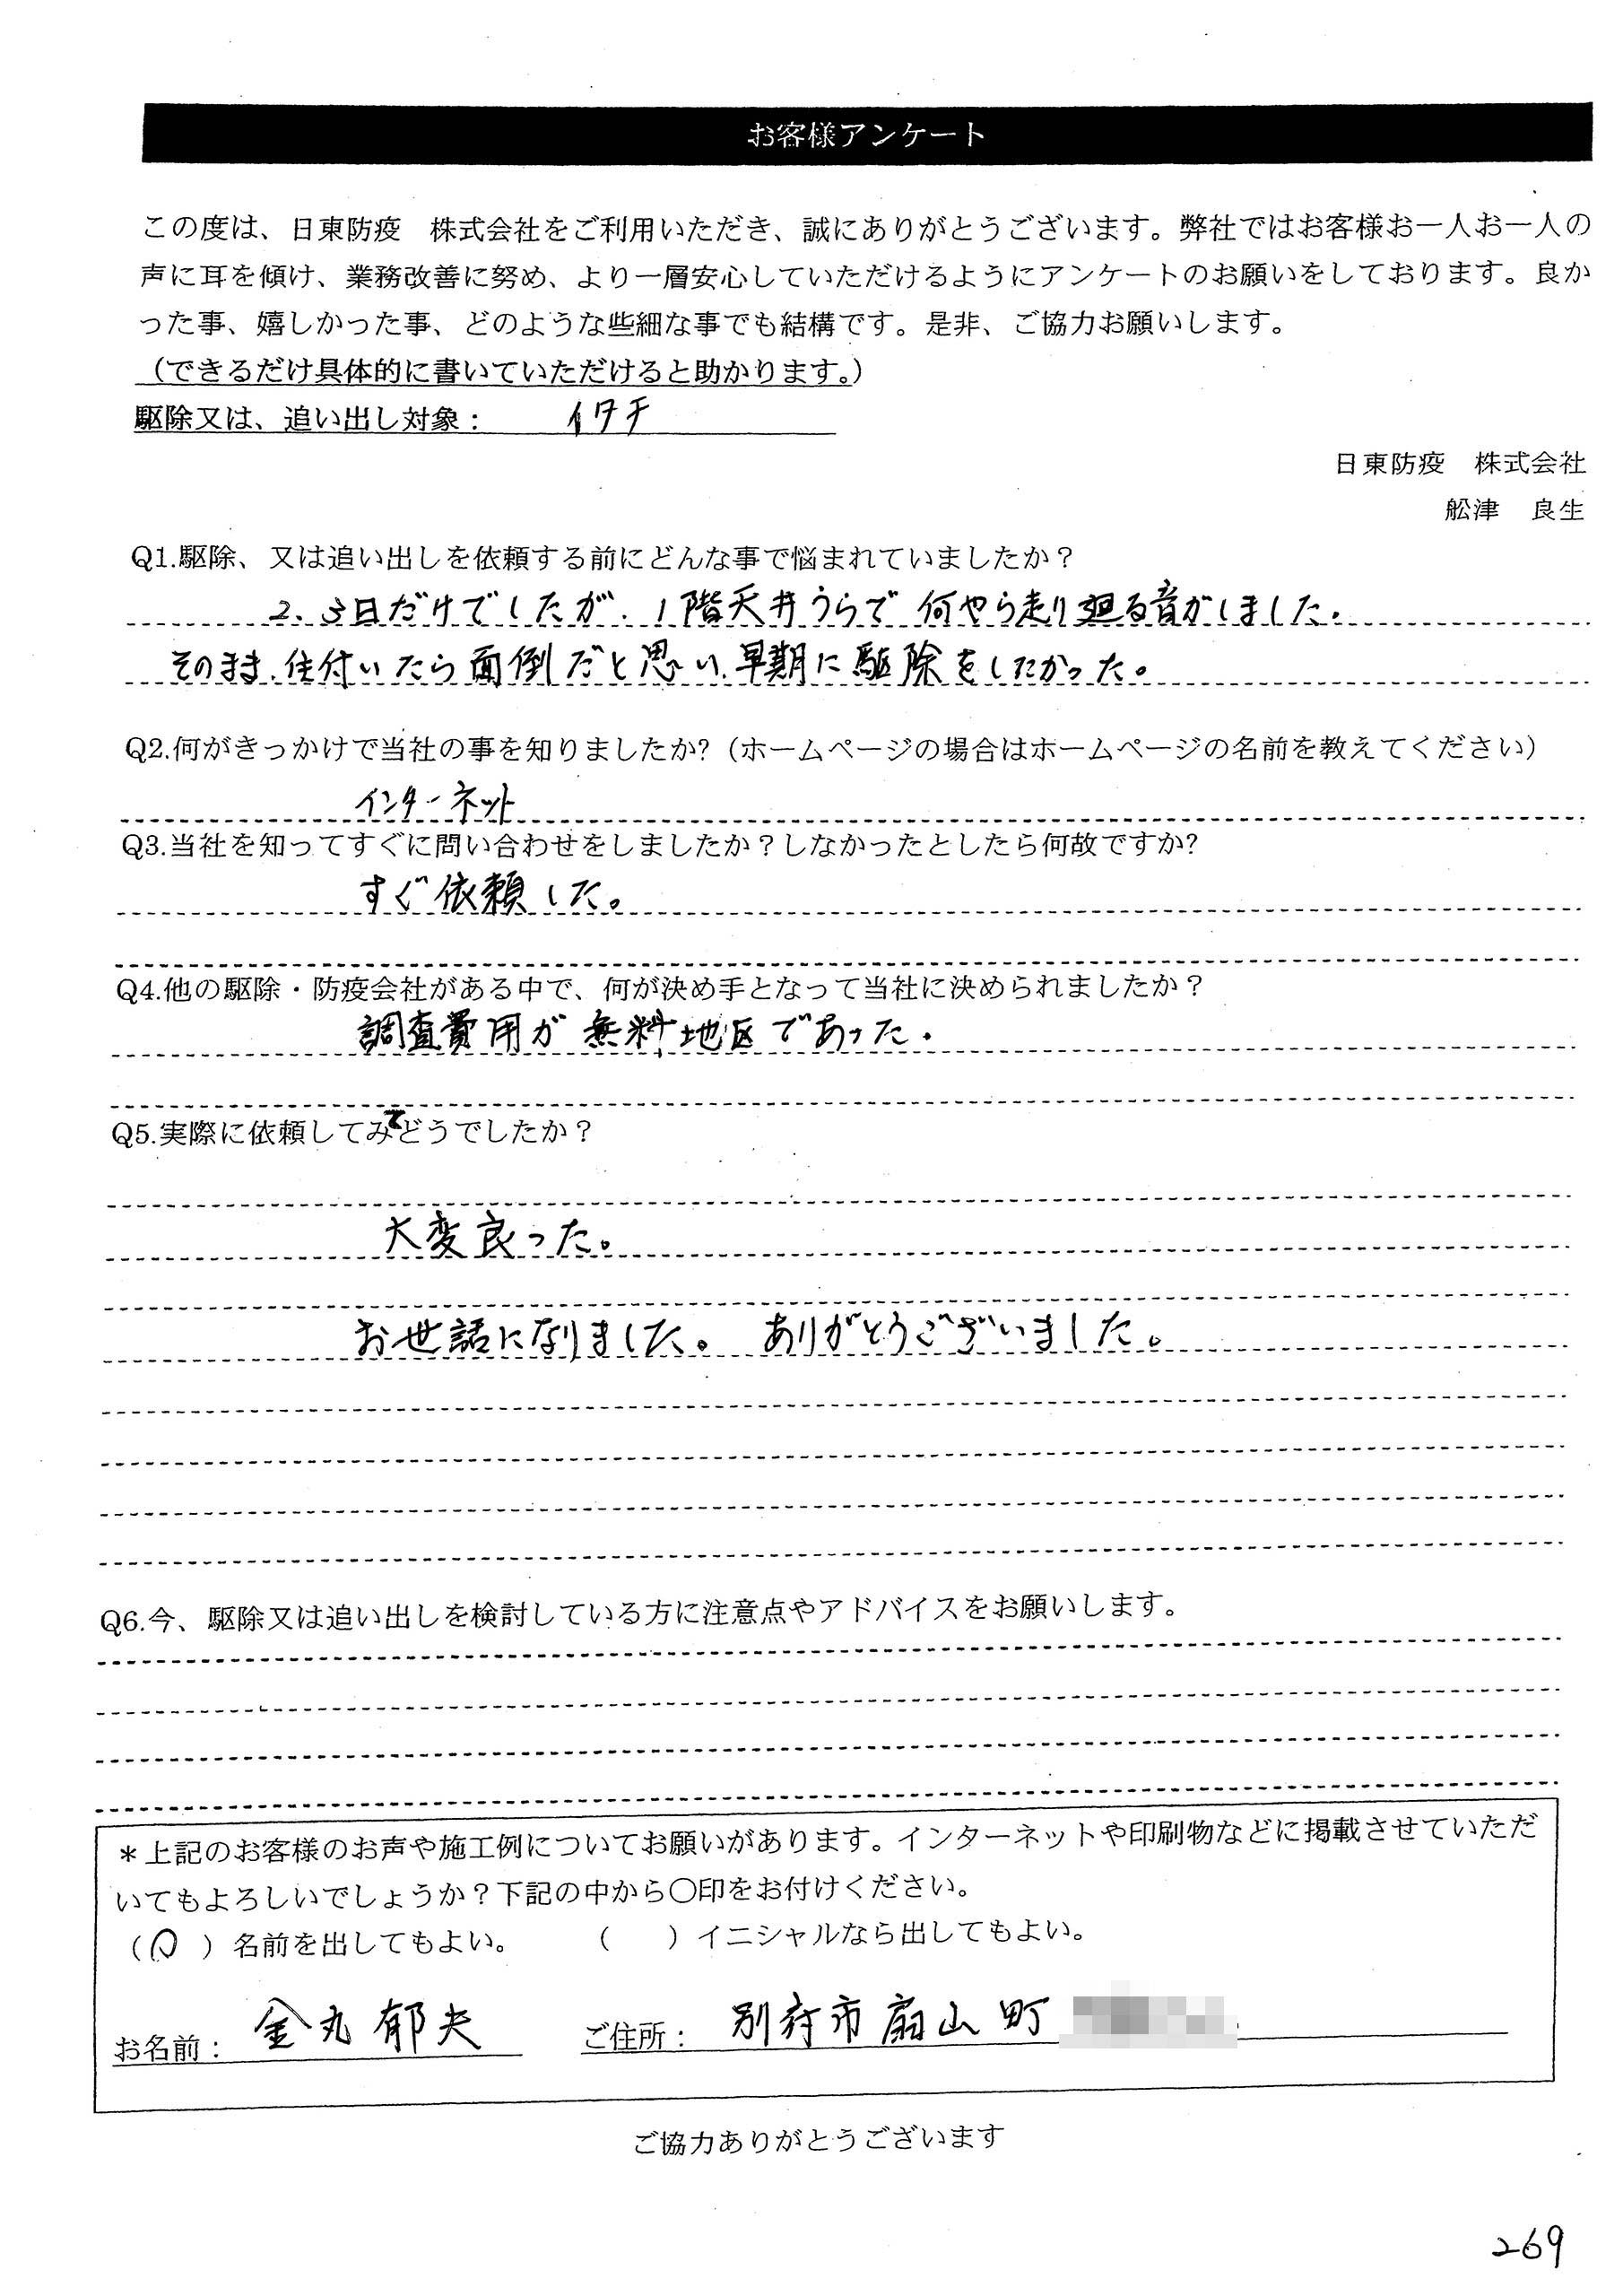 お客様アンケート
この度は、日東防疫　株式会社をご利用いただき、誠にありがとうございます。弊社ではお客様お一人お一人の
声に耳を傾け、業務改善に努め、より一層安心していただけるようにアンケートのお願いをしております。良か
った事、嬉しかった事、どのような些細な事でも結構です。是非、ご協力お願いします。
（できるだけ具体的に書いていただけると助かります。）
駆除又は、追い出し対象：　イタチ
日東防疫　株式会社
舩津　良生
Q1.駆除、又は追い出しを依頼する前にどんな事で悩まれていましたか？
2、3日だけでしたが、1階天井うらで何やら走り廻る音がしました。
そのまま、住付いたら面倒だと思い、早期に駆除をしたかった。
Q2.何がきっかけで当社の事を知りましたか?（ホームページの場合はホームページの名前を教えてください）
インターネット
Q3.当社を知ってすぐに問い合わせをしましたか？しなかったとしたら何故ですか?
すぐ依頼した。
Q4.他の駆除・防疫会社がある中で、何が決め手となって当社に決められましたか？
調査費用が無料地区であった.
Q5.実際に依頼してみてどうでしたか？
大変良った。
お世話になりました。　ありがとうございました。
Q6.今、駆除又は追い出しを検討している方に注意点やアドバイスをお願いします。
＊上記のお客様のお声や施工例についてお願いがあります。インターネットや印刷物などに掲載させていただ
いてもよろしいでしょうか？下記の中から〇印をお付けください。
（〇）名前を出してもよい。　　（　　）イニシャルなら出してもよい。
お名前：金丸 郁夫　ご住所：別府市扇山町
ご協力ありがとうございます
269